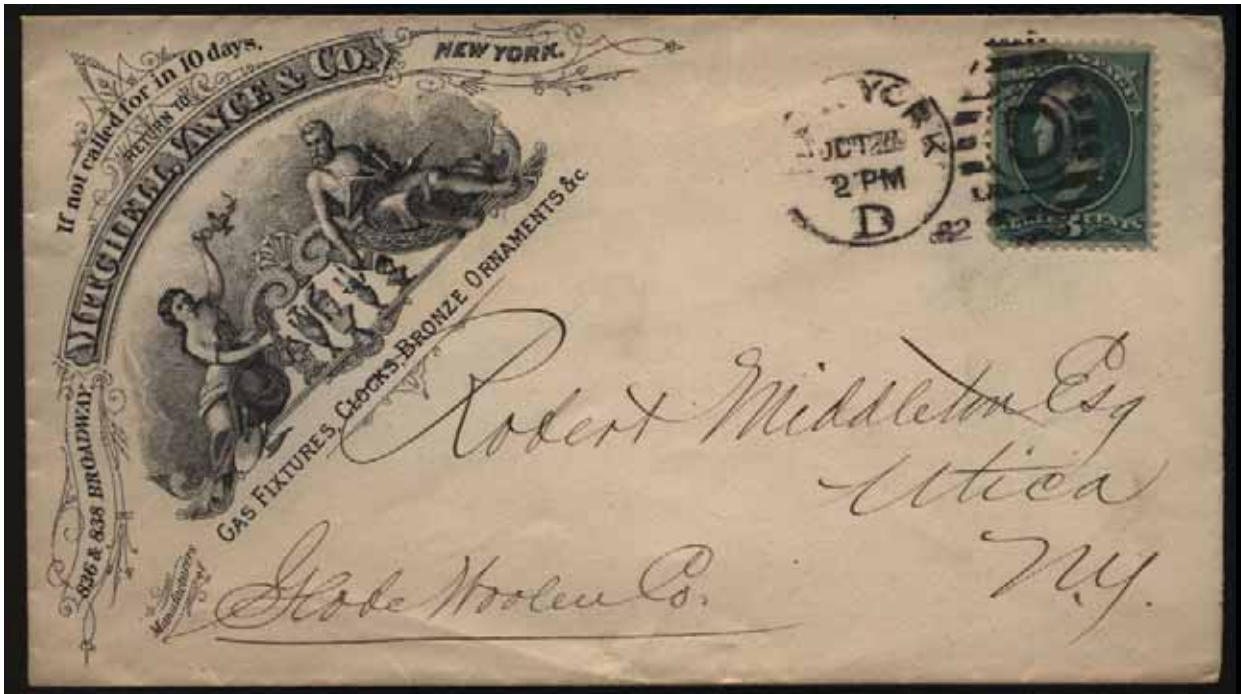 If not called for in 10 days,
RETURN TO
MITCHELL, VANCE & CO.
NEW YORK.
836 & 838 BROADWAY
Manufacturers of
GAS FIXTURES, CLOCKS, BRONZE ORNAMENTS &c.
YORK
OCT
2 PM
D
82
Robert Middleton Esq
Utica
N.Y.
Globe Woolen Co.